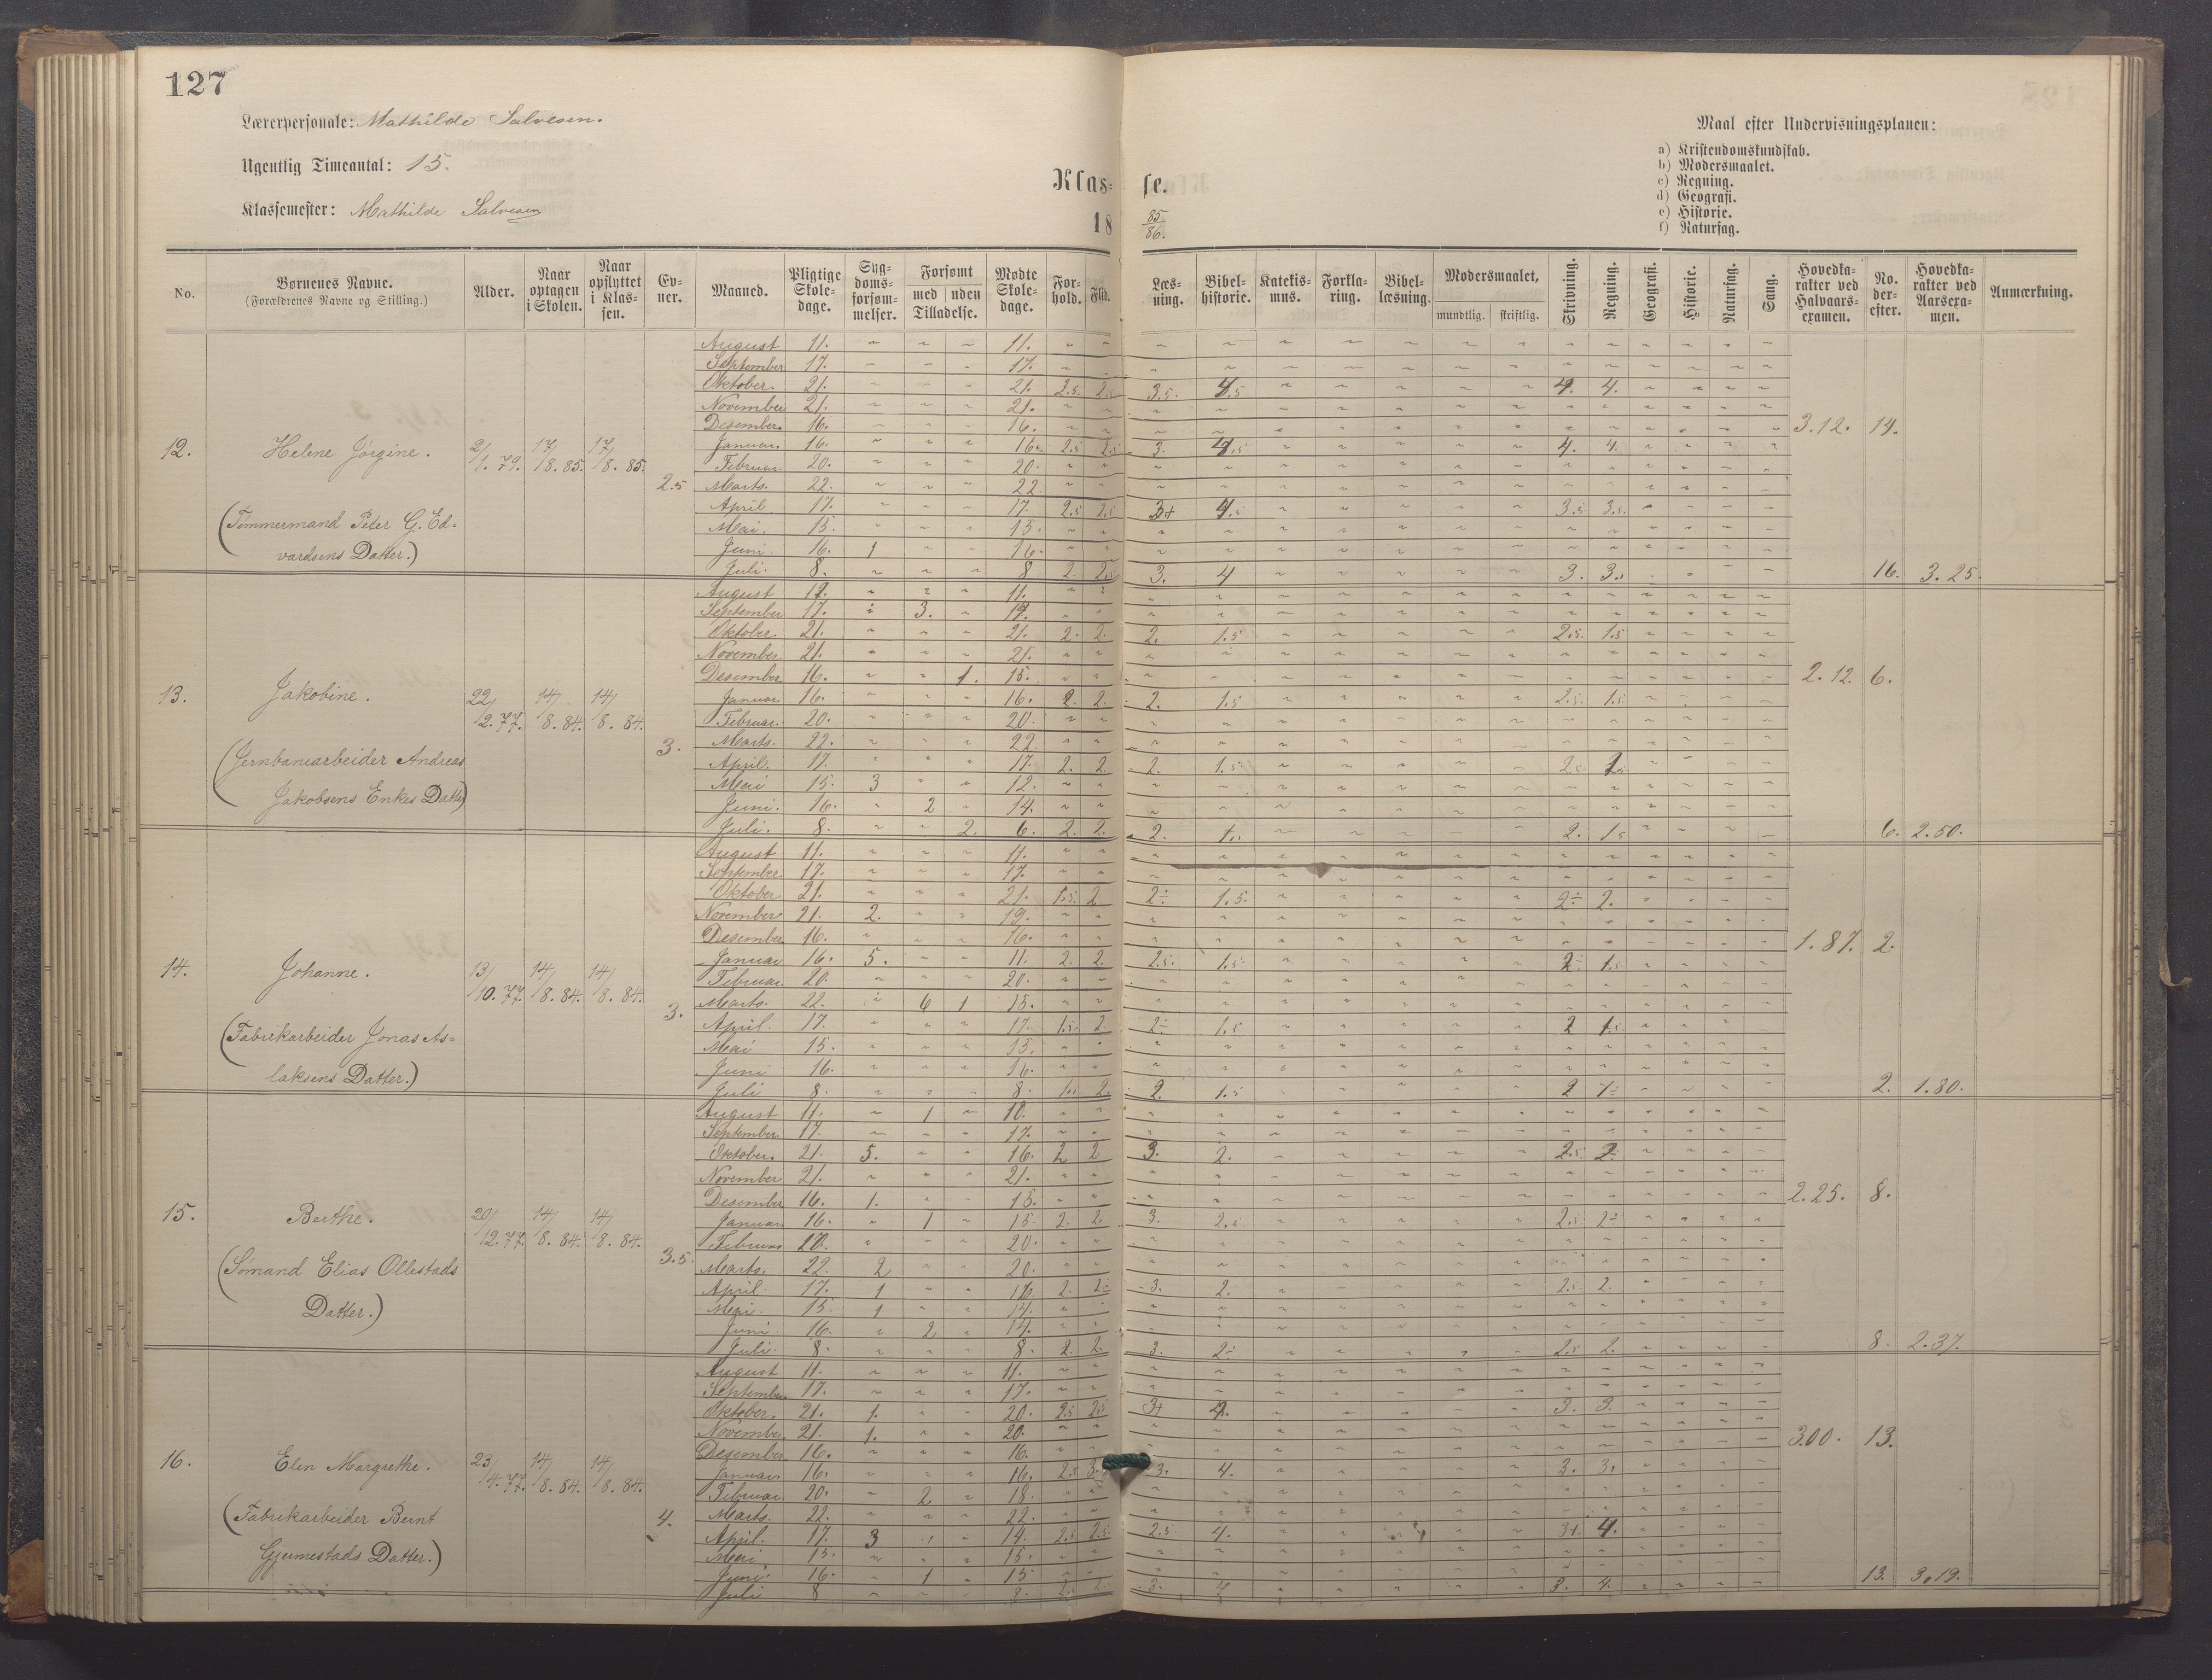 127
Lærerpersonale: Mathilde Salvesen.
Ugentlig Timeantal: 15.
Klassemester: Mathilde Salvesen
Klas- se.
18 85/86.
Maal efter Undervisningsplanen:
a) Kristendomskundskab.
b) Modersmaalet.
c) Regning.
d) Geografi.
e) Historie.
f) Naturfag.
No. Børnenes Navne. (Forældrenes Navne og Stilling.) Alder. Naar optagen i Skolen. Naar opflyttet i Klassen. Evner. Maaned. Pligtige Skoledage. Sygdomsforsømmelser. Forsømt med uden Tilladelse. Mødte Skoledage. Forhold. Flid. Læsning. Bibelhistorie. Katekismus. Forklaring. Bibellæsning. Modersmaalet, mundtlig. skriftlig. Skrivning. Regning. Geografi. Historie. Naturfag. Sang. Hovedkarakter ved Halvaarsexamen. No. derefter. Hovedkarakter ved Aarsexamen. Anmærkning.
12. Helene Jørgine. 2/1. 79. 17/8. 85. 17/8. 85. 2.5
(Tømmermand Peter G. Ed-
vardsens Datter.)
August 11. 11.
September 17. 17.
Oktober. 21. 21. 2.5. 2.5 3.5. 4.5 4. 4.
November 21. 21.
Desember. 16. 16. 3.12. 14.
Januar. 16. 16. 2.5 2.5 3. 4.5 4. 4.
Februar. 20. 20.
Marts. 22. 22.
April. 17. 17. 2.5 2.5 3+ 4.5 3.5 3.5
Mai. 15. 15.
Juni. 16. 1 16.
Juli. 8. 8 2. 2.5 3. 4 3. 3. 16. 3.25.
13. Jakobine. 22/2. 77. 14/8. 84. 14/8. 84. 3.
(Jernbanearbeider Andreas
Jakobsens Enkes Datter)
August 11. 11.
September 17. 3. 17.
Oktober. 21. 21. 2. 2. 2. 1.5 2.5. 1.5
November 21. 21.
Desember 16. 1. 15. 2.12. 6.
Januar. 16. 16. 2. 2. 2. 1.5 2.5. 1.5
Februar. 20. 20.
Marts. 22. 22
April. 17. 17. 2. 2 2. 1.5
Mai 15. 3 12.
Juni. 16. 2 14.
Juli. 8. 2. 6. 2. 2. 2. 2. 1.5 6. 2.50.
14. Johanne. 13/10. 77. 14/8. 84. 14/8. 84. 3.
(Fabrikarbeider Jonas As-
laksens Datter.)
August 11. 11.
September. 17. 17.
Oktober 21. 21. 1.5. 2 2÷ 1.5. 2÷ 2.
November 21. 2. 19.
Desember 16. 16. 1.87. 2.
Januar 16. 5. 11. 2. 2. 2.5. 1.5 2÷ 1.5
Februar. 20. 20.
Marts. 22. 6 1 15.
April. 17. 17. 1.5 2. 2÷ 1.5 2 1.5
Mai 15. 15.
Juni 16. 16.
Juli 8. 8. 2. 2. 1.5 2 1÷ 2. 1.80.
15. Berthe. 20/12. 77. 14/8. 84. 14/8. 84. 3.5.
(Sømand Elias Ollestads
Datter.)
August 11. 1 10.
September. 17. 17.
Oktober. 21. 5. 16. 2 2 3. 2. 2.5 2
November 21. 21.
Desember 16. 1. 15. 2.25. 8.
Januar 16. 1 15. 2. 2. 3. 2.5 2.5 2÷
Februar 20. 20.
Marts. 22. 2 20.
April. 17. 1 16 2. 2÷ 3. 2. 2.5 2.
Mai. 15. 1 14.
Juni. 16. 2 14.
Juli. 8. 8. 2. 2. 3. 2÷ 2.5 2. 8. 2.37.
16. Elen Margrethe. 23/4. 77. 14/8. 84. 14/8. 84. 4.
(Fabrikarbeider Bernt
Gjermestads Datter.)
August 11. 11.
September. 17. 17.
Oktober. 21. 1. 20. 2.5 2.5 3+ 4. 3. 3.
November. 21. 1. 20.
Desember 16. 16. 3.00. 13.
Januar. 16. 16. 2.5 3. 3. 4. 3. 3.
Februar. 20. 2 18.
Marts. 22. 22.
April. 17. 3 14. 2.5 2.5 2.5. 4. 3+. 4.
Mai. 15. 15.
Juni. 16. 1 15
Juli 8 8. 2. 2. 3. 4 3. 4. 13. 3.19.